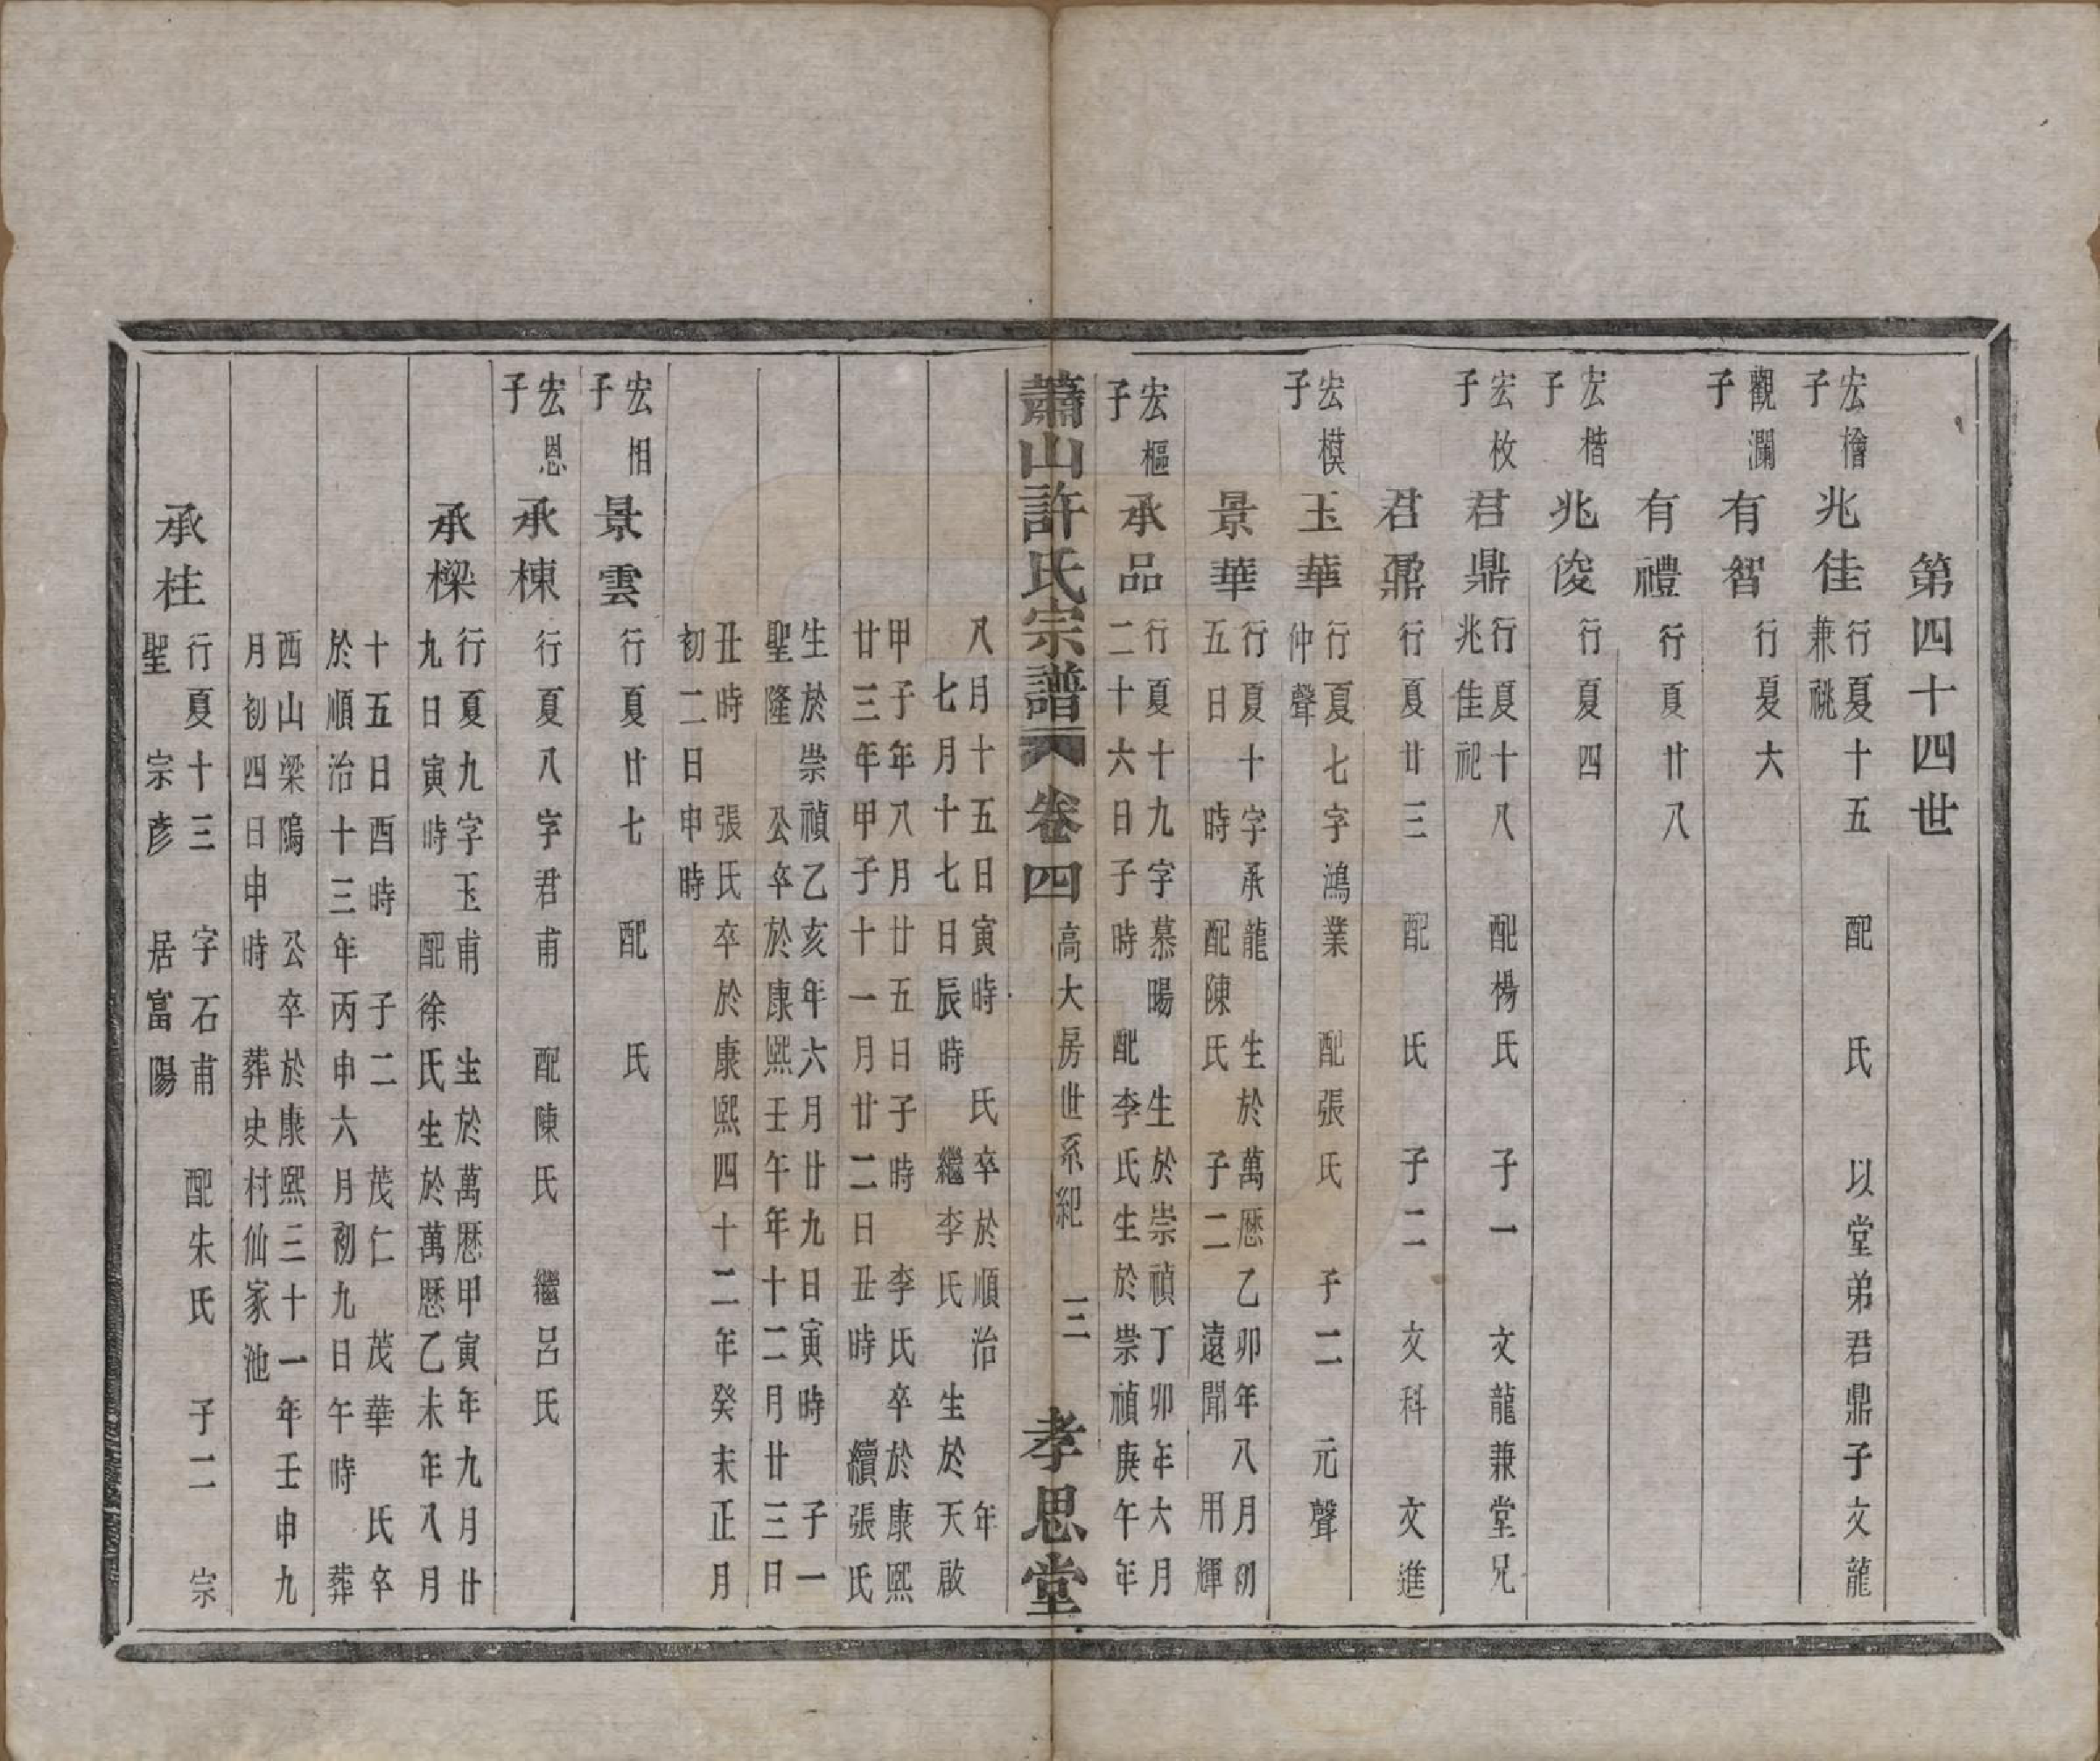 第四十四世
宏檜子 兆佳 行夏十五 配 氏 以堂弟君鼎子文龍
兼祧
觀瀾子 有智 行夏大
有禮 行夏廿八
宏楷子 兆俊 行夏四
宏枚子 君鼎 行夏十八 配楊氏 子一 文龍兼堂兄
兆佳祀
君鼐 行夏廿三 配 氏 子二 文科 文進
宏模子 玉華 行夏七字鴻業 配張氏 子二 元聲
仲聲
景華 行夏十 字承龍 生於萬歷乙卯年八月初
五日 時 配陳氏 子二 遠聞 用輝
宏樞子 承品 行夏十九字慕暘 生於崇禎丁卯年六月
二十六日子時 配李氏生於崇禎庚午年
蕭山許氏宗譜 卷四 高大房世系紀 三 孝思堂
八月十五日寅時 氏卒於順治 年
七月十七日辰時 繼李氏 生於天啟
甲子年八月廿五日子時 李氏卒於康熙
廿三年甲子十一月廿二日丑時 續張氏
生於崇禎乙亥年六月廿九日寅時 子一
聖隆 公卒於康熙壬午年十二月廿三日
丑時 張氏卒於康熙四十二年癸未正月
初二日申時
宏相子 景雲 行夏廿七 配 氏
宏恩子 承棟 行夏八字君甫 配陳氏 繼呂氏
承樑 行夏九字玉甫 生於萬歷甲寅年九月廿
九日寅時 配徐氏生於萬歷乙未年八月
十五日酉時 子二 茂仁 茂華 氏卒
於順治十三年丙申六月初九日午時 葬
西山梁隖 公卒於康熙三十一年壬申九
月初四日申時 葬史村仙家池
承柱 行夏十三 字石甫 配朱氏 子二 宗
聖 宗彥 居富陽